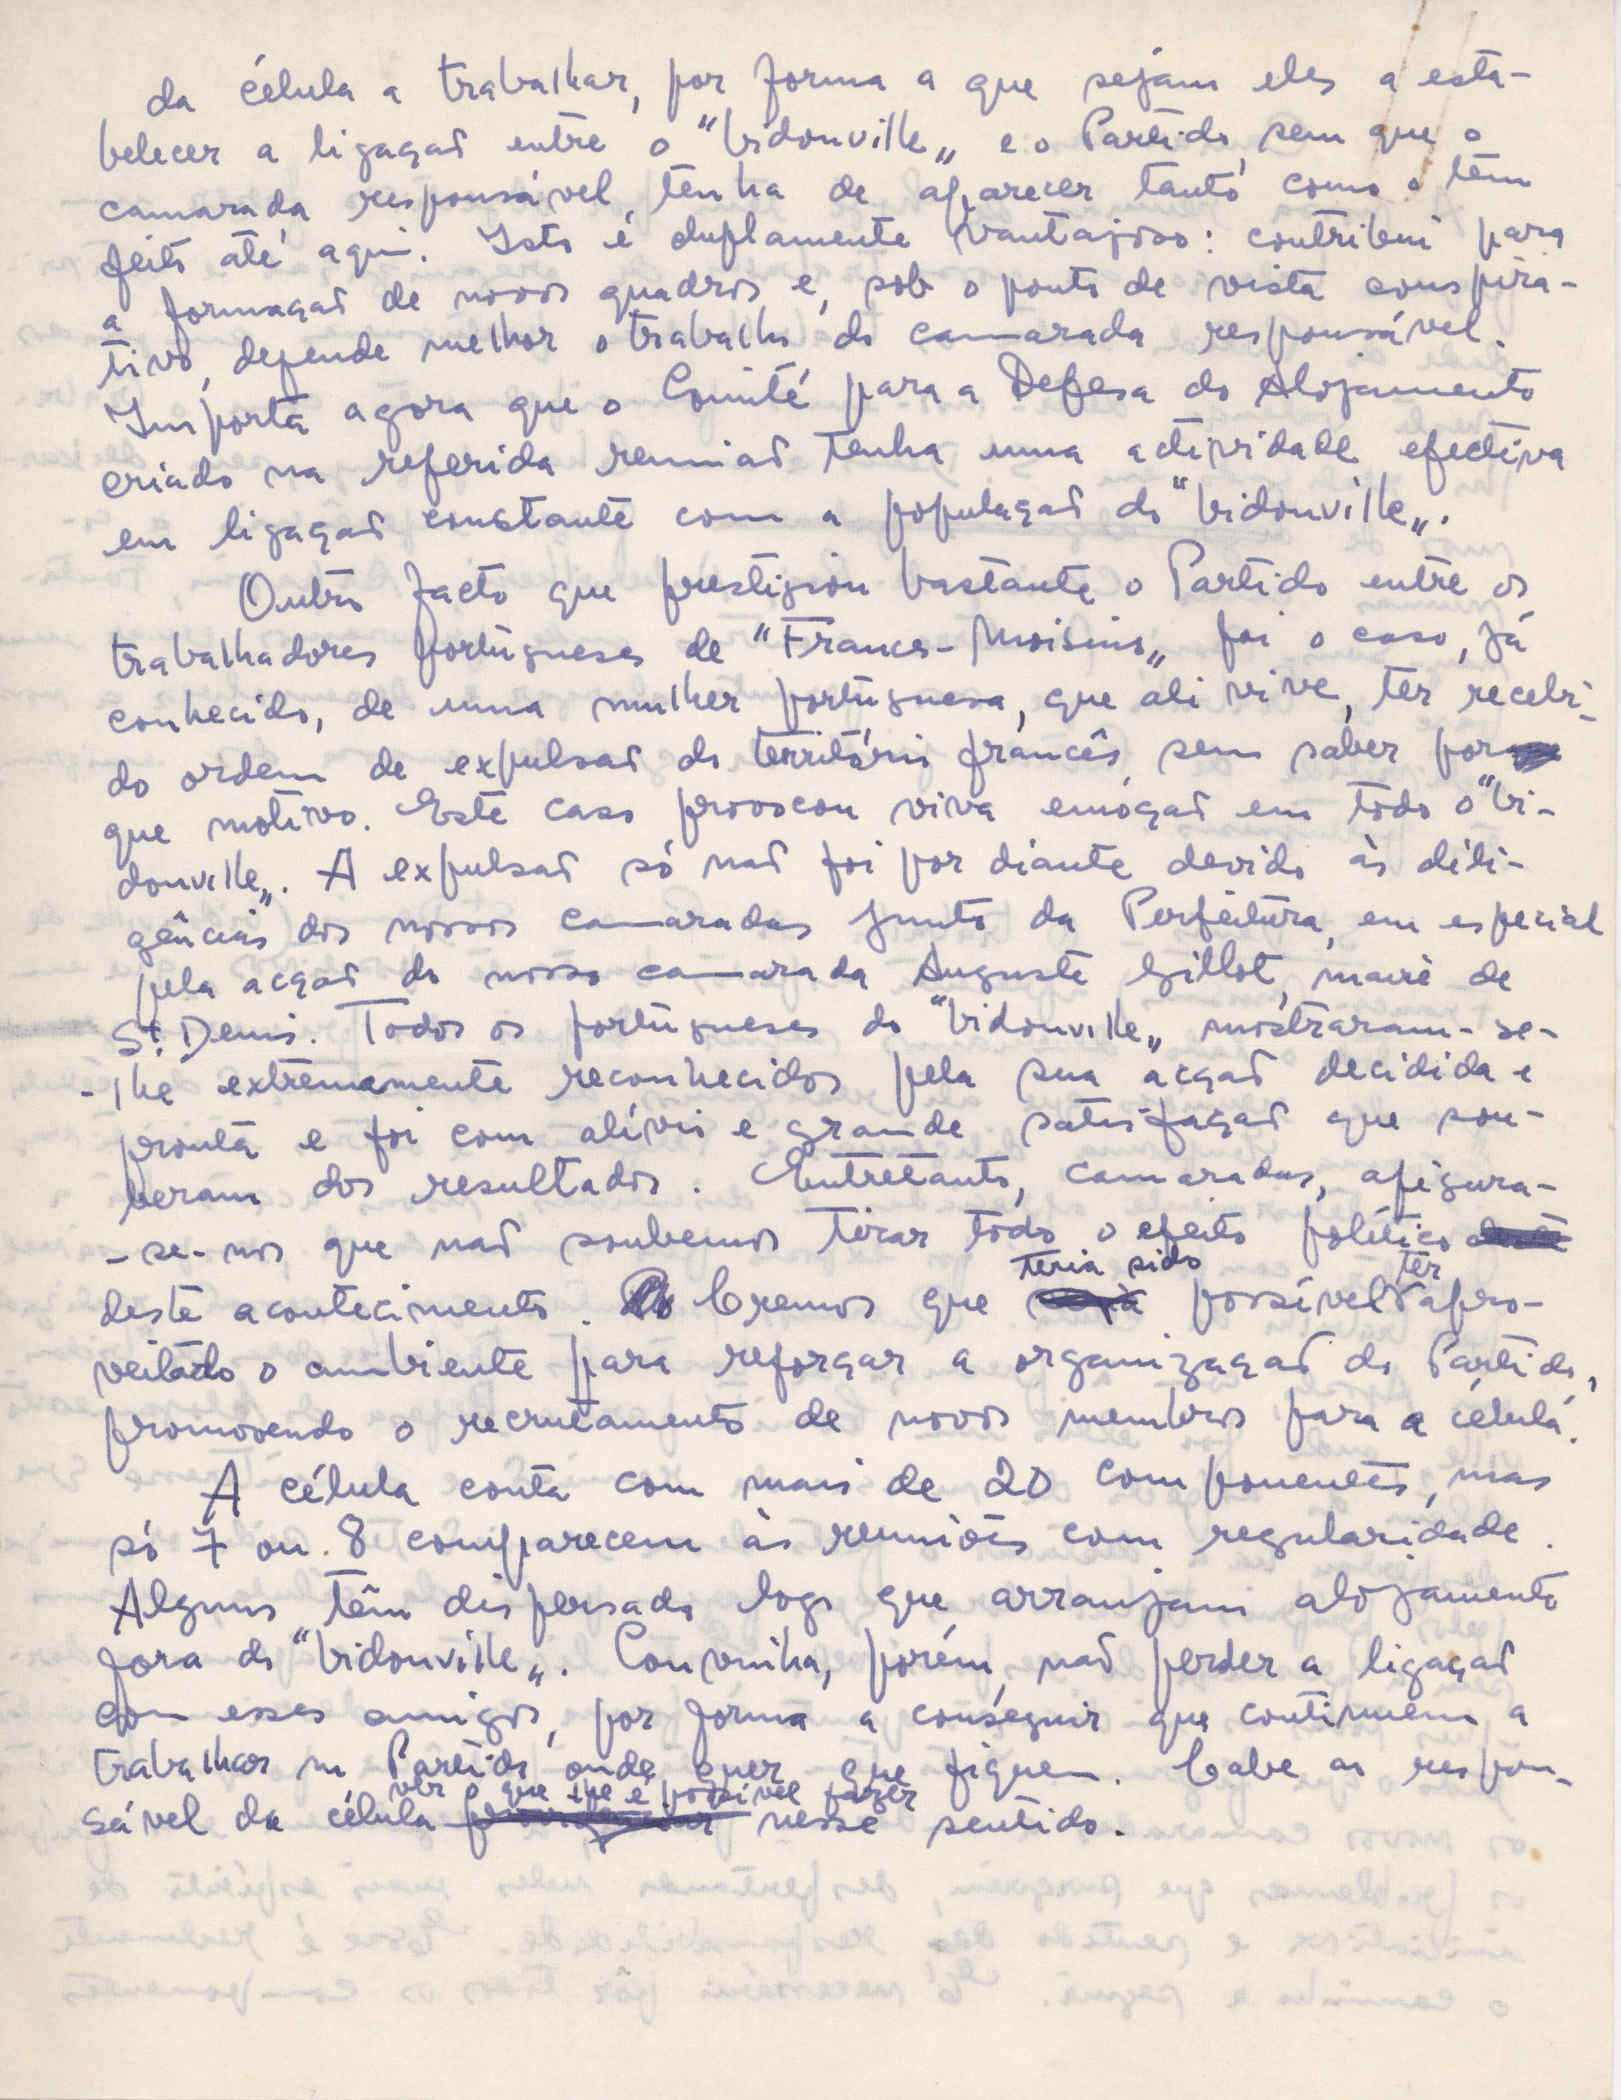 da célula a trabalhar, por forma a que sejam eles a esta-
belecer a ligação entre o "bidonville„ e o Partido, sem que o
camarada responsável tenha de aparecer tanto como o tem
feito até aqui. Isto é duplamente vantajoso: contribui para
a formação de novos quadros e, sob o ponto de vista conspira-
tivo, defende melhor o trabalho do camarada responsável.
Importa agora que o Comité para a Defesa do Alojamento
criado na referida reunião tenha uma actividade efectiva
em ligação constante com a população do "bidonville„.
Outro facto que prestigiou bastante o Partido entre os
trabalhadores portugueses de "Francs-Moisins„ foi o caso, já
conhecido, de uma mulher portuguesa, que ali vive, ter recebi-
do ordem de expulsão do território francês, sem saber por
que motivo. Este caso provocou viva emoção em todo o "bi-
donville„. A expulsão só não foi por diante devido às dili-
gências dos nossos camaradas junto da Perfeitura, em especial
pela acção do nosso camarada Auguste Gillot, maire de
St. Denis. Todos os portugueses do "bidonville„ mostraram-se-
-lhe extremamente reconhecidos pela sua acção decidida e
pronta e foi com alívio e grande satisfação que sou-
beram dos resultados. Entretanto, camaradas, afigura-
-se-nos que não soubemos tirar todo o efeito político
deste acontecimento. Cremos que teria sido possível ter apro-
veitado o ambiente para reforçar a organização do Partido,
promovendo o recrutamento de novos membros para a célula.
A célula conta com mais de 20 componentes, mas
só 7 ou 8 comparecem às reuniões com regularidade.
Alguns têm dispersado logo que arranjam alojamento
fora do "bidonville„. Convinha, porém, não perder a ligação
com esses amigos, por forma a conseguir que continuem a
trabalhar no Partido onde quer que fiquem. Cabe ao respon-
sável da célula ver o que lhe é possível fazer nesse sentido.